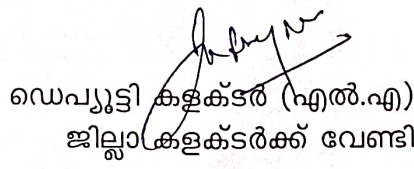 ഡെപ്യൂട്ടി കളക്ടർ (എൽ.എ)
ജില്ലാ കളക്ടർക്ക് വേണ്ടി